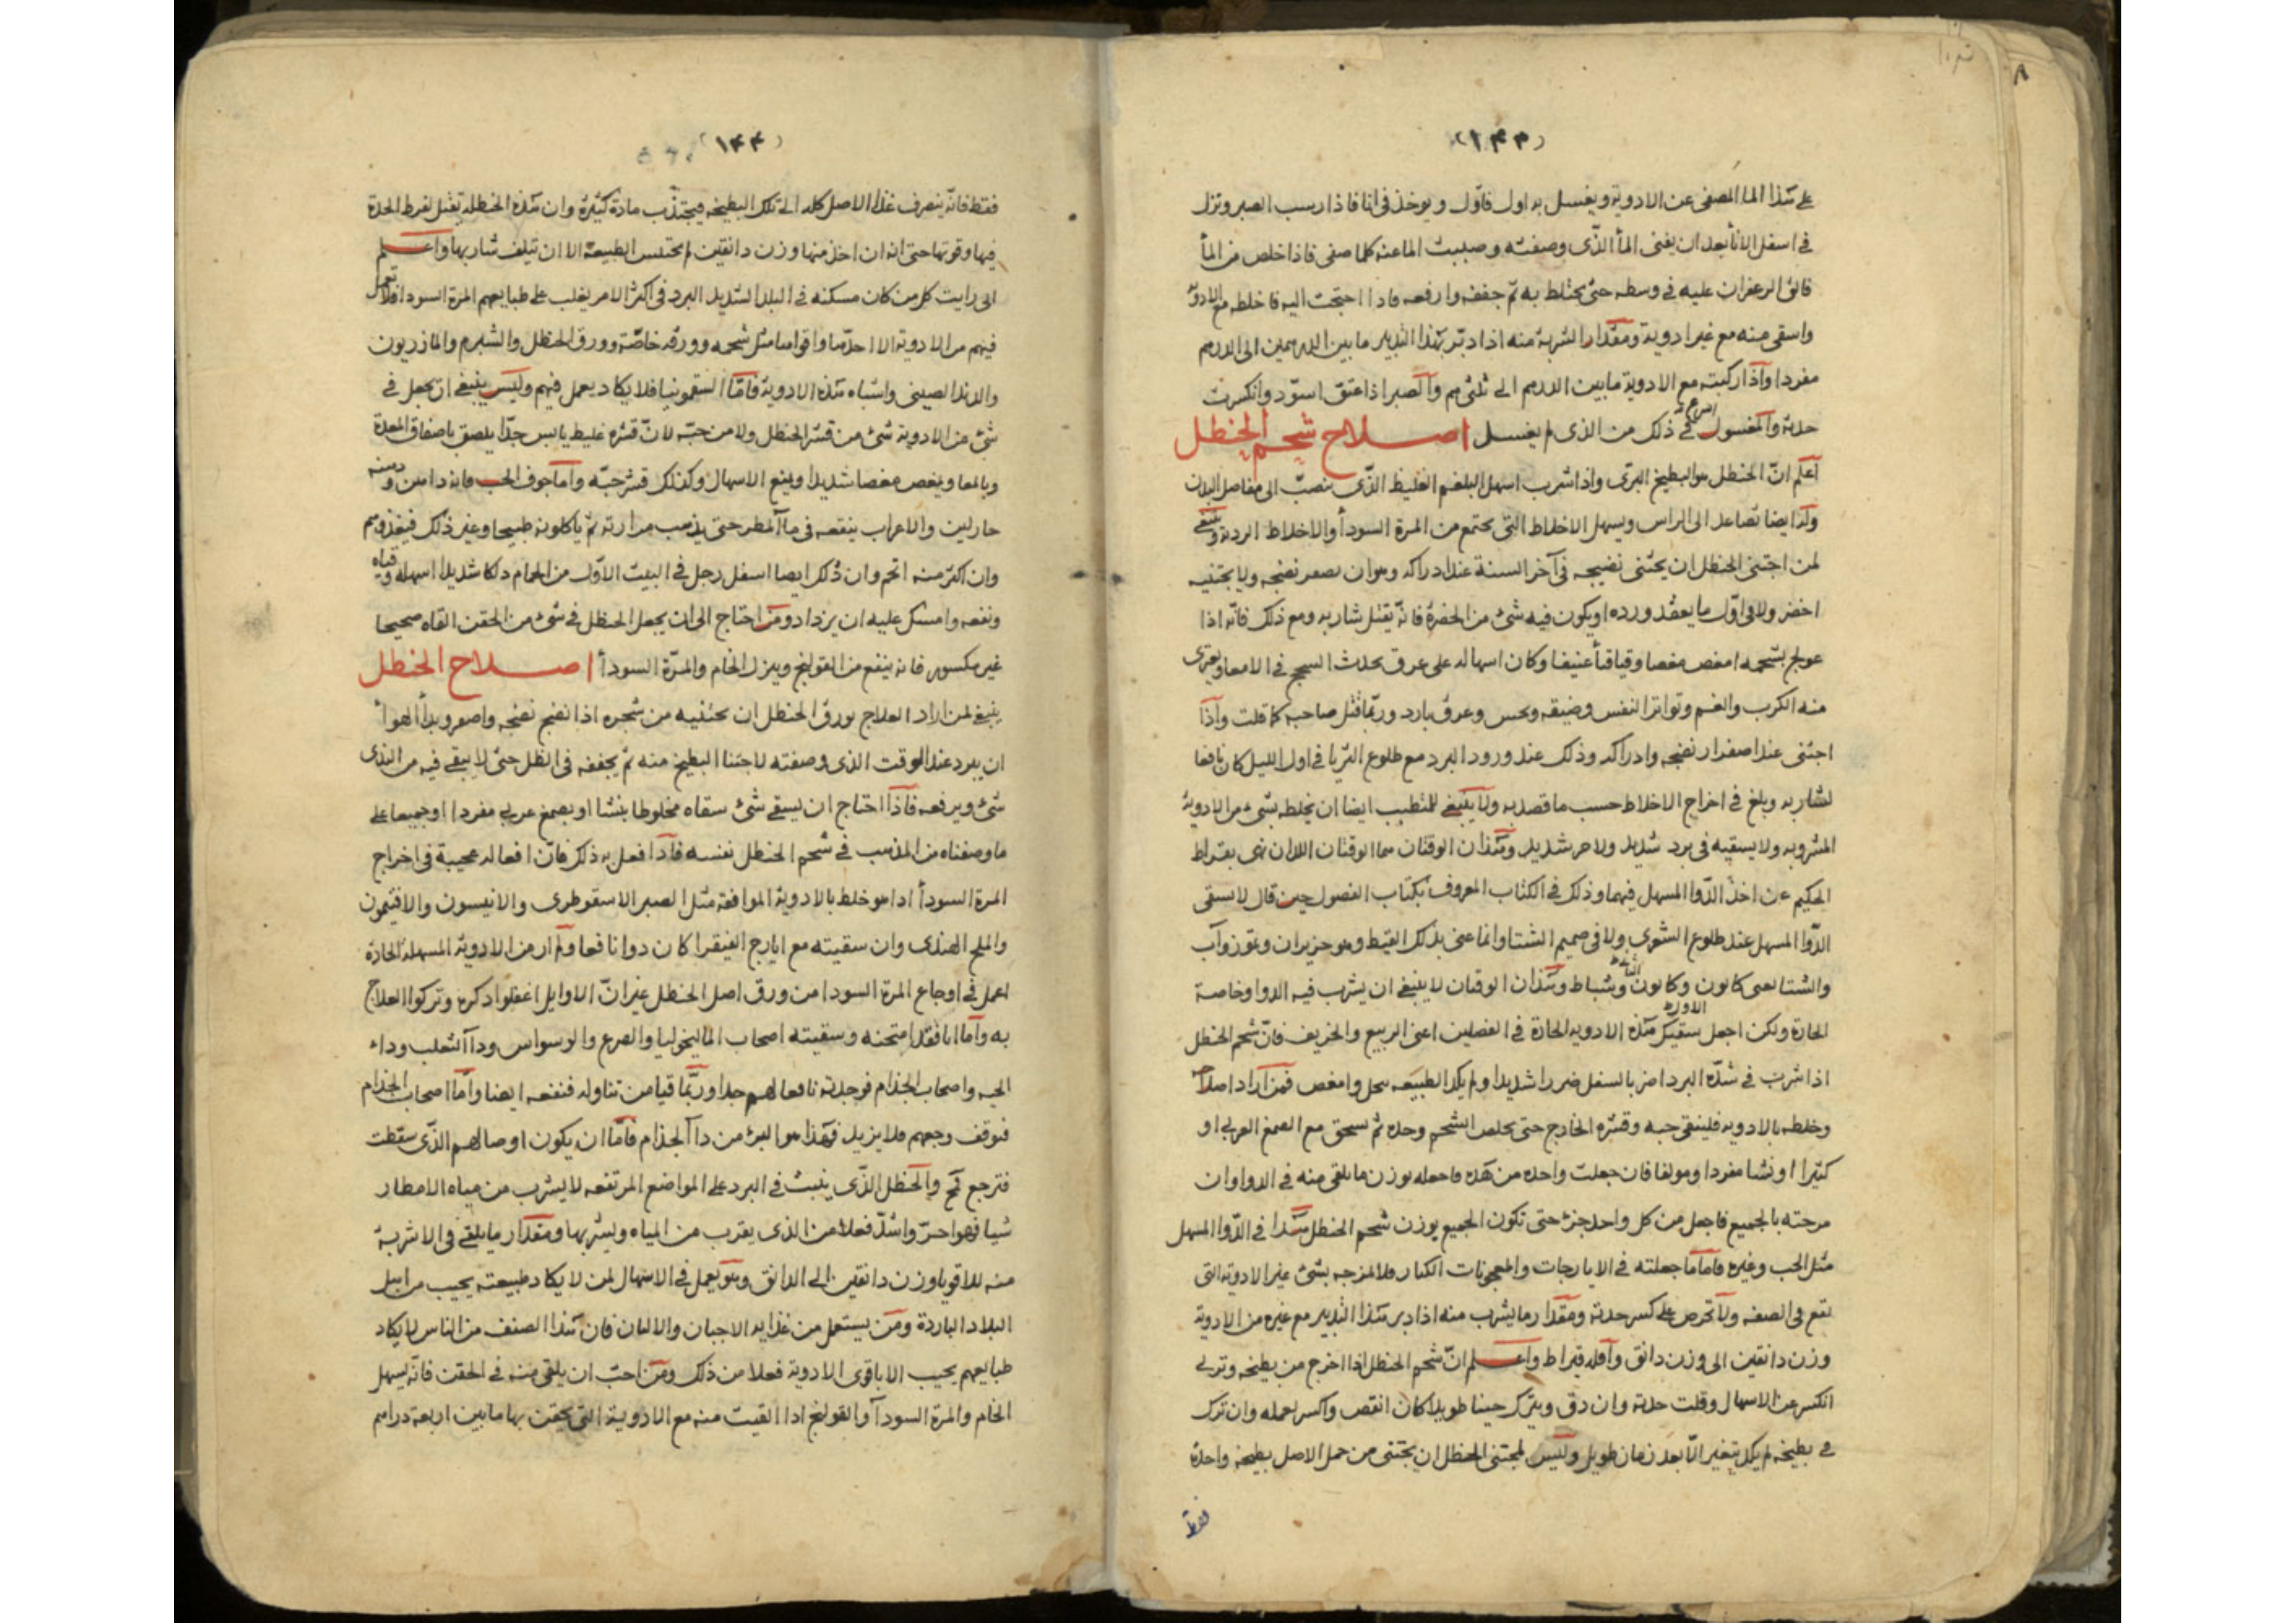 (۱۴۳)
على هذا الماء المصفى عن الادوية ويغسل به اول فاوّل ويوخذ فى انا فاذا رسب الصبر ونزل
فى اسفل الاناء بعد ان يفنى الماء الذّى وصفته وصببت الماء عنه كلما صفى فاذا خلص من الماء
فالق الزعفران عليه فى وسطه حتى يختلط به ثم جففه وارفعه فاذا احتجت اليه فاخلطه مع الادوية
واسقى منه مع غير ادوية ومقدار الشربة منه اذا دبّر بهذا التدبير ما بين الدرهمين الى الدرهم
مفردا واذا ركبته مع الادوية ما بين الدرهم الى ثلثى درهم والصبر اذا عتق اسوّد وانكسرت
حدته والمغسول اسرع فى ذلك من الذى لم يغسل اصلاح شحم الحنظل
اعلم انّ الحنظل هو البطيخ البرّى واذا شرب اسهل البلغم الغليظ الذّى ينصبّ الى مفاصل البدن
ولد ايضا تصاعد الى الراس ويسهل الاخلاط التى يجتمع من المرة السوداء والاخلاط الردية وينبغى
لمن اجتنى الحنظل ان يجتنى نضيجه فى آخر السنة عند ادراكه وهو ان يصفر نضجه ولا يجتنيه
اخضر ولا فى اوّل ما يعقد ورده او يكون فيه شئ من الخضرة فانه يقتل شاربه ومع ذلك فانّه اذا
عولج بشحمه امغص مغصا وقيا قيأ عنيفا وكان اسهاله على عرق يحدث السحج فى الامعا ويعترى
منه الكرب والغم وتواتر النفس وضيقه ونحس وعرق بارد وربّما قتل صاحبه كما قلت واذا
اجتنى عند اصفرار نضجه وادراكه وذلك عند ورود البرد مع طلوع الثريا فى اول الليل كان نافعا
لشاربه وبلغ فى اخراج الاخلاط حسب ما قصد به ولا ينبغى للمتطبب ايضا ان يخلطه بشئ من الادوية
المشروبه ولا يسقيه فى برد شديد ولا حر شديد وهذان الوقتان هما الوقتان اللذان نهى بقراط
الحكيم عن اخذ الدّوا المسهل فيهما وذلك فى الكتاب المعروف بكتاب الفصول حين قال لا يسقى
الدّوا المسهل عند طلوع الشعرى ولا فى صميم الشتا وانما عنى بذلك القيظ وهو حزيران وتموز وآب
والشتا يعنى كانون وكانون الثانى وشباط وهذان الوقتان لا ينبغى ان يشرب فيه الدوا وخاصة
الحارة ولكن اجعل سقيك هذه الادويه الحارة فى الفصلين اعنى الربيع والخريف فانّ شحم الحنظل
اذا شرب فى شدّة البرد اضر بالسفل ضررا شديدا ولم يكد الطبيعه ينحل وامغص فمن اراد اصلاحه
وخلطه بالادويه فلينقى حبه وقشره الخارج حتى يخلص الشحم وحده ثم يسحق مع الصمغ العربى او
كثيرا او نشا مفردا ومولفا فان جعلت واحده من هذه فاجعله بوزن ما يلقى منه فى الدوا وان
مزجته بالجميع فاجعل من كل واحد جزء حتى تكون الجميع بوزن شحم الحنظل هذا فى الدّوا المسهل
مثل الحب وغيره فاما ما جعلته فى الايارجات والمعجونات الكبار فلا تمزجه بشئ غير الادوية التى
تقع فى الصفه ولا تحرص على كسر حدته ومقدار ما يشرب منه اذا دبر هذا التدبير مع غيره من الادوية
وزن دانقين الى وزن دانق واقله قيراط واعلم انّ شحم الحنظل اذا اخرج من بطيخه وتربى
انكسر عن الاسهال وقلت حدته وان دق ويترك حينا طويلا كان انقص واكسر لعمله وان ترك
فى بطيخه لم يكد يتغير الّا بعد زمان طويل وليس لمجتنى الحنظل ان يجتنى من حمل الاصل بطيخة واحدة
فقط
(۱۴۴)
فقط فانّه ينصرف غذا الاصل كله الى تلك البطيخه فيجتذب مادة كثيرة وان هذه الحنظله يقتل لفرط الحدة
فيها وقوتها حتى انه ان اخذ منها وزن دانقين لم يحتبس الطبيعة الا ان يتلف شاربها واعلم
انى رايت كل من كان مسكنه فى البلد الشديد البرد فى اكثر الامر يغلب على طبايعهم المرة السودا فلا تعمل
فيهم من الادوية الا احدّها واقواها مثل شحمه وورقه خاصّة وورق الحنظل والشبرم والمازريون
والدند الصينى واشباه هذه الادوية فامّا السقمونيا فلا يكاد يعمل فيهم وليس ينبغى ان يجعل فى
شئ من الادوية شئ من قشر الحنظل ولا من حبّه لانّ قشره غليظ يابس جدّا يلصق باصفاق المعدة
وبالمعا ويغص مغصا شديدا ويمنع الاسهال وكذلك قشر حبّه واما جوف الحب فانه دهن ودسمه
حار لين والاعراب ينقعه فى ماء المطر حتى يذهب مرارته ثم ياكلونه طبيخا وغير ذلك فيغذوهم
وان اكثر منه اتخم وان دُلك ايضا اسفل رجل فى البيت الاوّل من الحمام دلكا شديدا اسهله وقياه
ونفعه وامسك عليه ان يزداد ومن احتاج الى ان يجعل الحنظل فى شئ من الحقن القاه صحيحا
غير مكسور فانه ينفع من القولنج وينزل الخام والمرّة السوداء اصلاح الحنظل
ينبغى لمن اراد العلاج بورق الحنظل ان يجتنيه من شجره اذا نضج نضجه واصفر وبدأ الهواء
ان يبرد عند الوقت الذى وصفته لاجتناء البطيخ منه ثم يجففه فى الظل حتى لا يبقى فيه من الندى
شئ ويرفعه فاذا احتاج ان يسقى شئ سقاه مخلوطا بنشا او بصمغ عربى مفردا او جميعا على
ما وصفناه من المذهب فى شحم الحنظل نفسه فاذا فعل به ذلك فانّ افعاله عجيبة فى اخراج
المرة السوداء اذا هو خلط بالادوية الموافقة مثل الصبر الاسقوطرى والانيسون والافتيمون
والملح الهندى وان سقيته مع ايارج الفيقرا كان دوا نافعا ولم ار من الادوية المسهلة الحارة
اعمل فى اوجاع المرة السودا من ورق اصل الحنظل غير انّ الاوايل اغفلوا ذكره وتركوا العلاج
به واما انا فقد امتحنه وسقيته اصحاب الماليخوليا والصرع والوسواس وداء الثعلب وداء
الحيه واصحاب الجذام فوجدته نافعا لهم جدا وربّما قيا من تناوله فنفعه ايضا وامّا اصحاب الجذام
فيوقف وجعهم فلا يزيد فهذا هو البرئ من داء الجذام فامّا ان يكون اوصالهم الذّى سقطت
فترجع فلا والحنظل الذّى ينبت فى البرد على المواضع المرتفعه لا يشرب من مياه الامطار
شيا فهو احرّ واشدّ فعلا من الذى يقرب من المياه ويشربها ومقدار ما يلقى فى الاشربة
منه للاقويا وزن دانقين الى الدانق وهو يعمل فى الاسهال لمن لا يكاد طبيعته يجيب من اهل
البلاد الباردة ومن يستعمل من غذايه الاجبان والالبان فان هذا الصنف من الناس لا يكاد
طبايعهم يجيب الا باقوى الادوية فعلا من ذلك ومن احبّ ان يلقى منه فى الحقن فانّه يسهل
الخام والمرة السوداء والقولنج اذا القيت منه مع الادوية التى يحقن بها ما بين اربعة دراهم